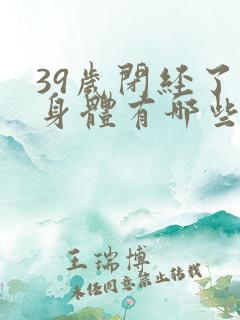 39歲閉經了
身體有哪些
王瑞博
未经同意禁止转载